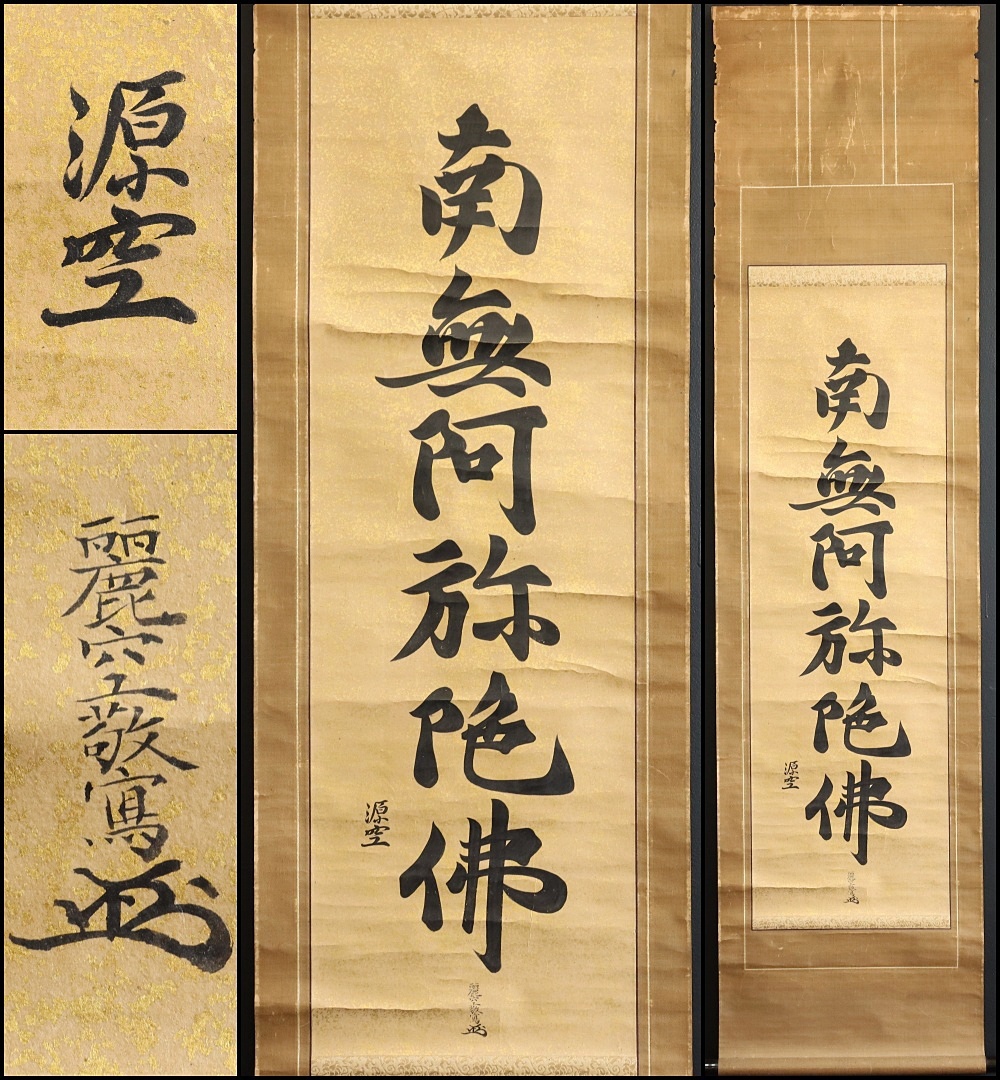 源空
麗空敬寫
南無阿弥陀佛
源空
麗空敬寫
南無阿弥陀佛
源空